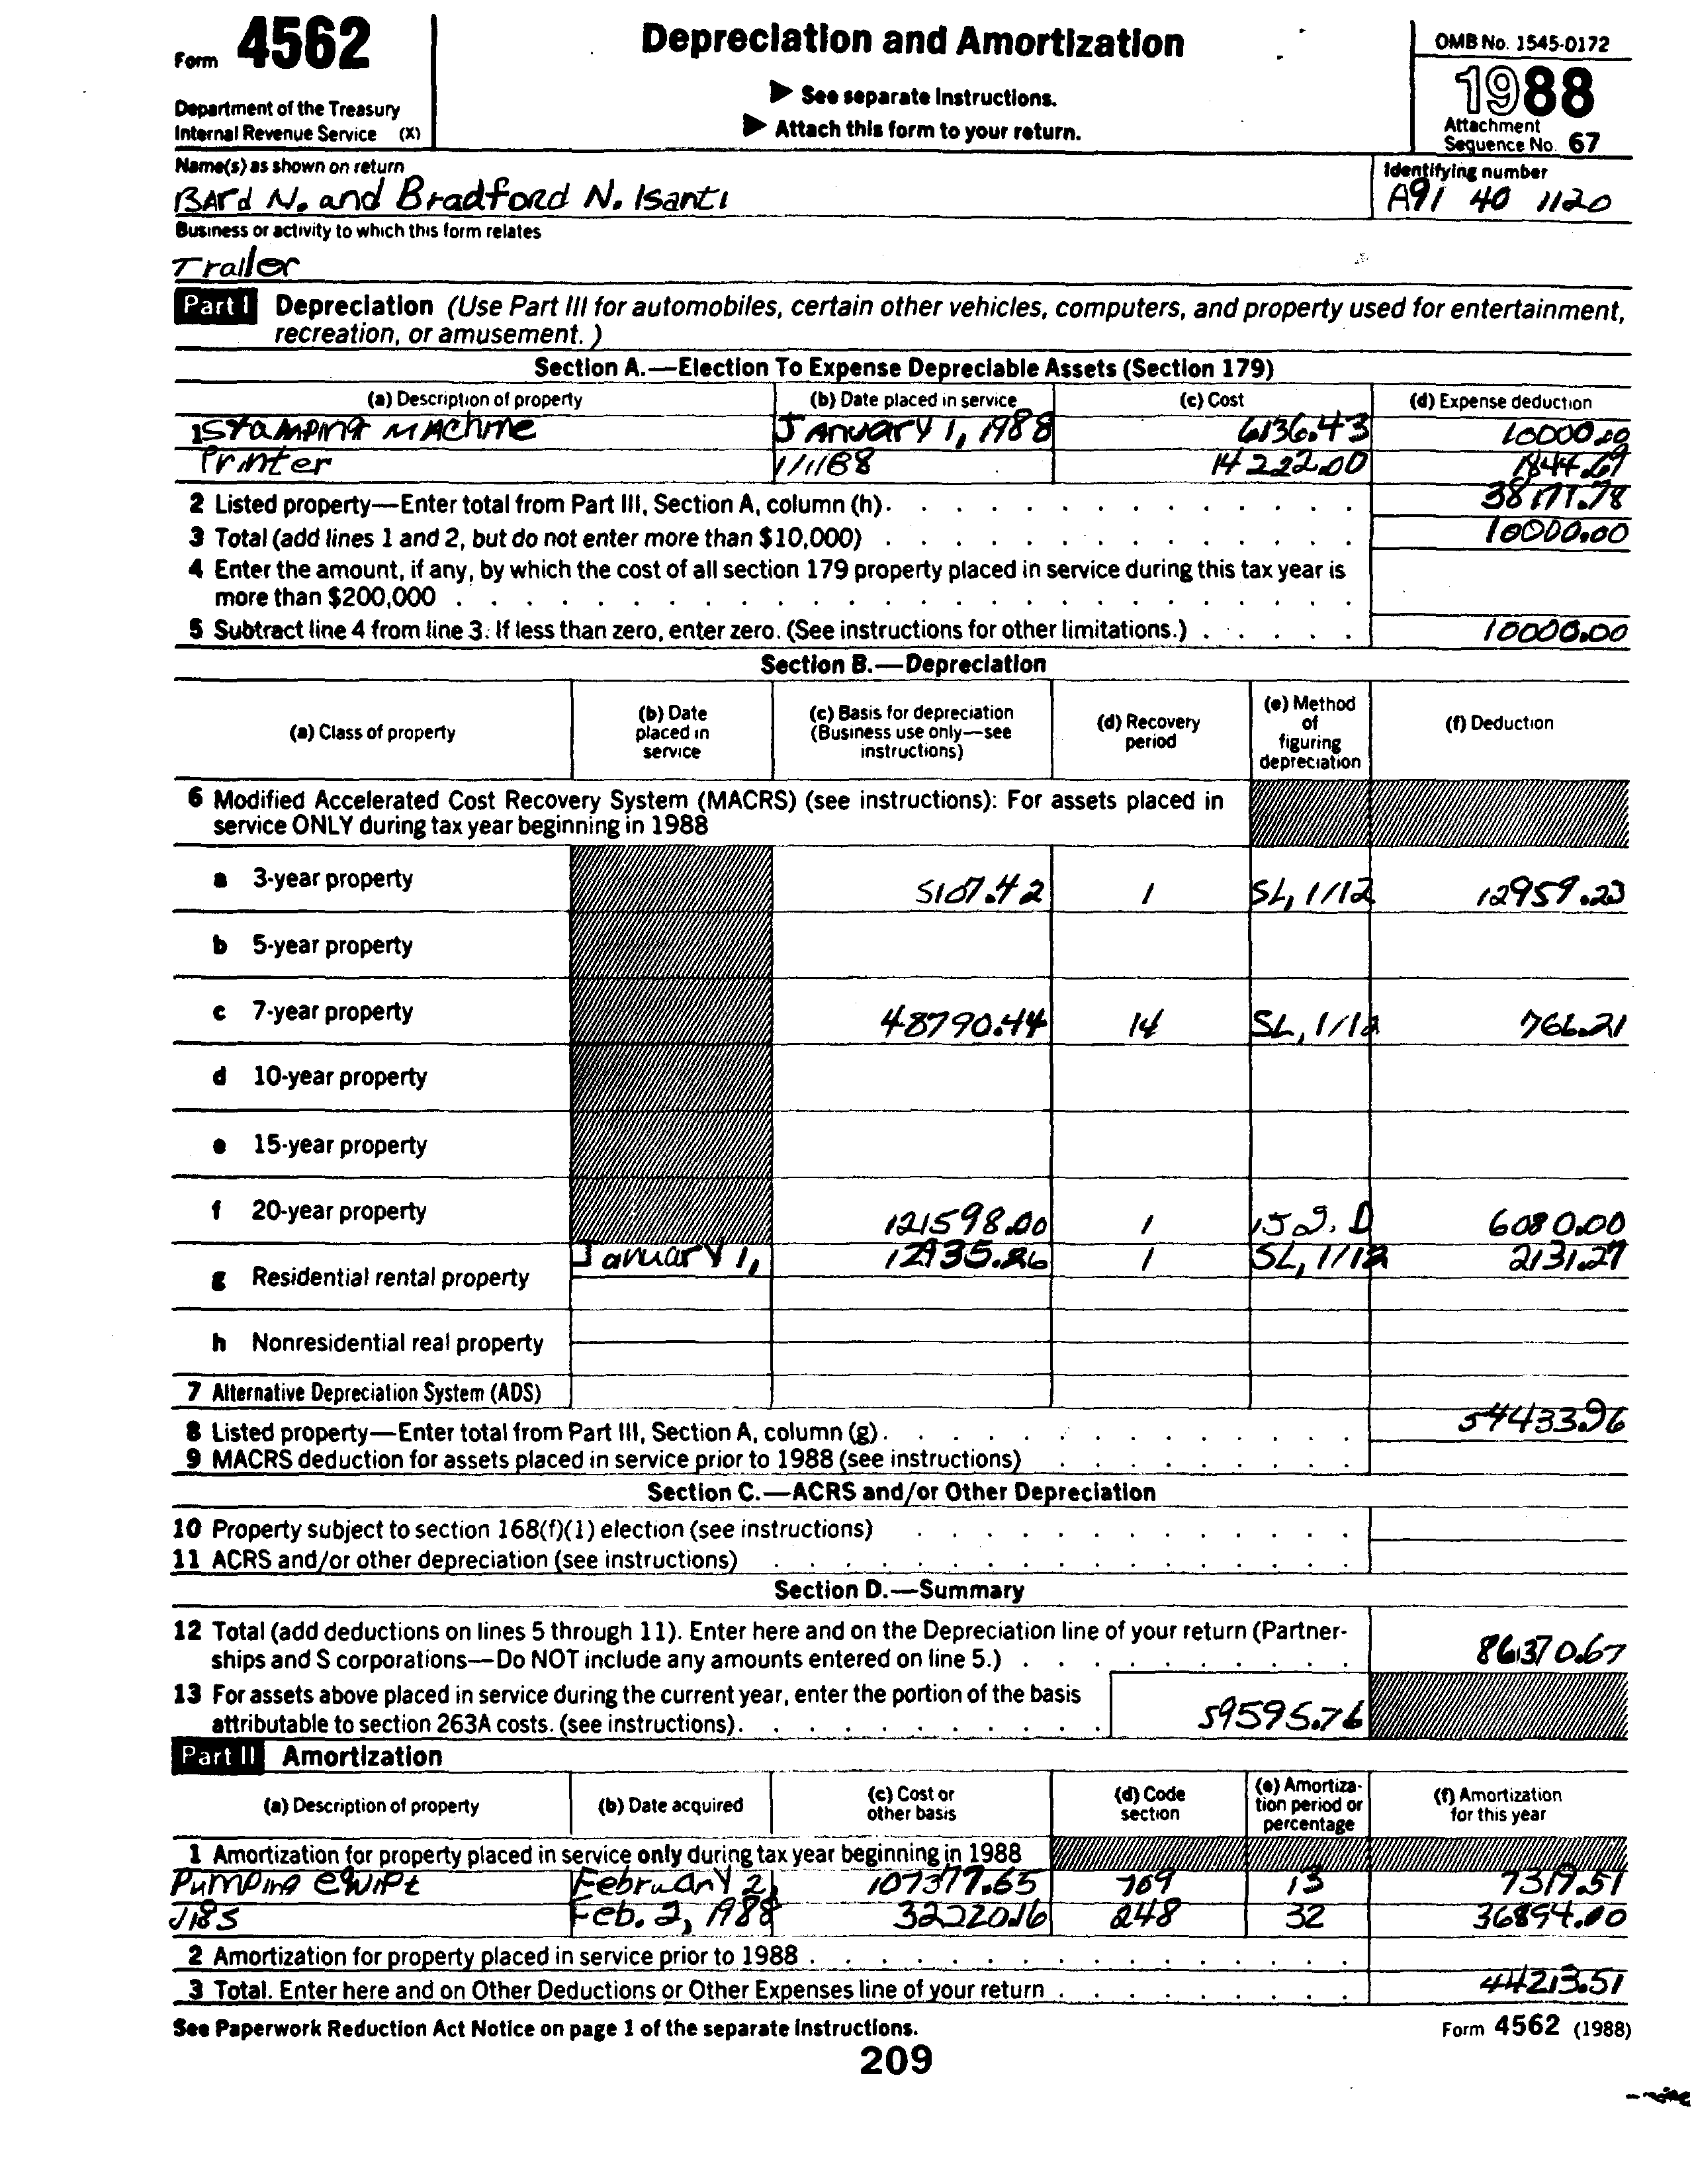 Form 4562
Depreciation and Amortization
OMB No. 1545-0172
1988
Department of the Treasury
Internal Revenue Service (X)
▶ See separate Instructions.
▶ Attach this form to your return.
Attachment
Sequence No. 67
Name(s) as shown on return
Identifying number
BArd N. and Bradford N. Isanti
A91 40 1120
Business or activity to which this form relates
Trailer
Part I Depreciation (Use Part III for automobiles, certain other vehicles, computers, and property used for entertainment,
recreation, or amusement.)
Section A.—Election To Expense Depreciable Assets (Section 179)
(a) Description of property (b) Date placed in service (c) Cost (d) Expense deduction
1 Stamping Machine January 1, 1988 6136.43 10000.00
Printer 1/1/88 14222.00 1844.69
2 Listed property—Enter total from Part III, Section A, column (h). 38171.78
3 Total (add lines 1 and 2, but do not enter more than $10,000) 10000.00
4 Enter the amount, if any, by which the cost of all section 179 property placed in service during this tax year is
more than $200,000
5 Subtract line 4 from line 3. If less than zero, enter zero. (See instructions for other limitations.) 10000.00
Section B.—Depreciation
(a) Class of property (b) Date placed in service (c) Basis for depreciation (Business use only—see instructions) (d) Recovery period (e) Method of figuring depreciation (f) Deduction
6 Modified Accelerated Cost Recovery System (MACRS) (see instructions): For assets placed in
service ONLY during tax year beginning in 1988
a 3-year property 5107.42 1 SL, 1/12 12959.23
b 5-year property
c 7-year property 48790.44 14 SL, 1/12 766.21
d 10-year property
e 15-year property
f 20-year property 121598.00 1 6080.00
g Residential rental property January 1, 12935.26 1 SL, 1/12 2131.27
h Nonresidential real property
7 Alternative Depreciation System (ADS)
8 Listed property—Enter total from Part III, Section A, column (g). 54433.96
9 MACRS deduction for assets placed in service prior to 1988 (see instructions)
Section C.—ACRS and/or Other Depreciation
10 Property subject to section 168(f)(1) election (see instructions)
11 ACRS and/or other depreciation (see instructions)
Section D.—Summary
12 Total (add deductions on lines 5 through 11). Enter here and on the Depreciation line of your return (Partner-
ships and S corporations—Do NOT include any amounts entered on line 5.) 86370.67
13 For assets above placed in service during the current year, enter the portion of the basis
attributable to section 263A costs. (see instructions). 59595.76
Part II Amortization
(a) Description of property (b) Date acquired (c) Cost or other basis (d) Code section (e) Amortiza-tion period or percentage (f) Amortization for this year
1 Amortization for property placed in service only during tax year beginning in 1988
Pumping equipt February 2, 107377.65 169 13 7319.51
Jigs Feb. 2, 1988 322220.16 248 32 36894.00
2 Amortization for property placed in service prior to 1988
3 Total. Enter here and on Other Deductions or Other Expenses line of your return 44213.51
See Paperwork Reduction Act Notice on page 1 of the separate Instructions.
Form 4562 (1988)
209